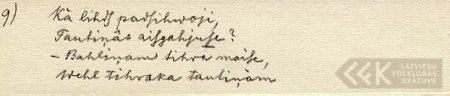 9) Kā lihds padsihwoji,
Tautiņās aisgahjuse?
- Bahliņam tihra maise,
Wehl tihraka tautiņam
LATVIEŠU
FOLKLORAS
KRĀTUVE